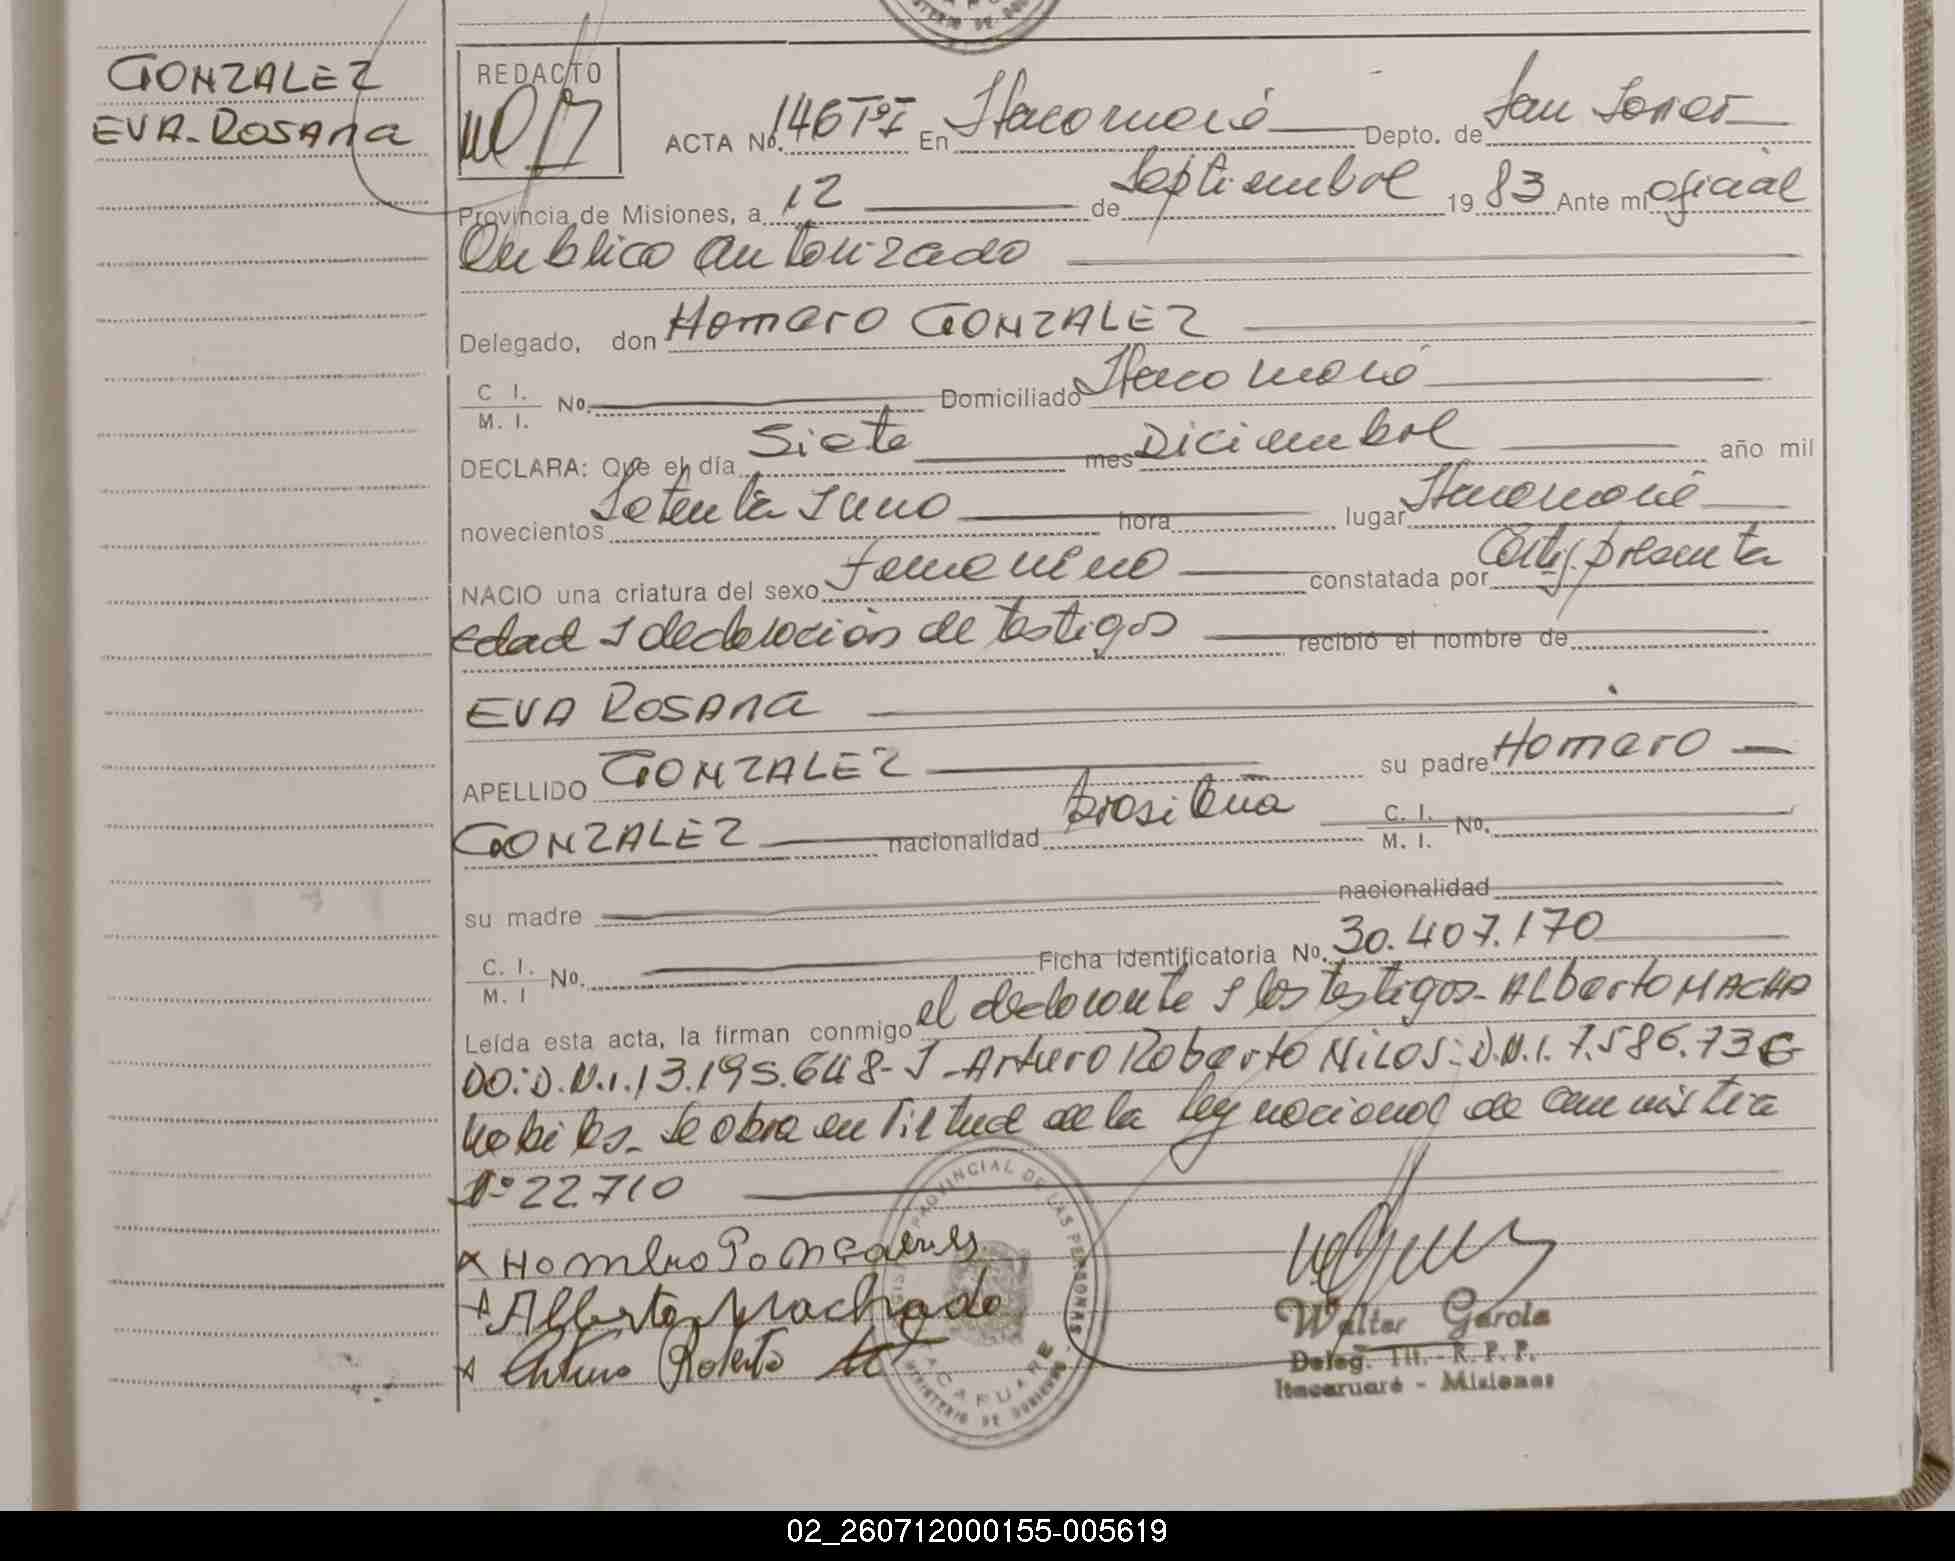 GONZALEZ
EVA-ROSANA
REDACTO
ACTA No. 146 Tº I En Itacaruaré Depto. de San Javier
Provincia de Misiones, a 12 de Septiembre 1983 Ante mi oficial
Publico autorizado
Delegado, don Homero GONZALEZ
C. I.
M. I. No. Domiciliado Itacaruaré
DECLARA: Que el día Siete mes Diciembre año mil
novecientos Setenta y uno hora lugar Itacaruaré
NACIO una criatura del sexo femenino constatada por Certif. presunta
edad y declaración de testigos recibió el nombre de
EVA ROSANA
APELLIDO GONZALEZ su padre Homero
GONZALEZ nacionalidad brasileña C. I.
M. I. No.
su madre nacionalidad
C. I.
M. I No. Ficha Identificatoria No. 30.407.170
Leída esta acta, la firman conmigo el declarante y los testigos-Alberto MACHA
DO: D.N.I. 13.195.648- y -Arturo Roberto D.N.I. 7.586.736
habiles- Se obra en virtud de la ley nacional de amnistia
Nº 22.710
Alberto Machado
Arturo Roberto
REGISTRO PROVINCIAL DE LAS PERSONAS
ITACARUARE
MINISTERIO DE GOBIERNO
Walter García
Deleg. Tit. - R. P. P.
Itacaruaré - Misiones
02_260712000155-005619